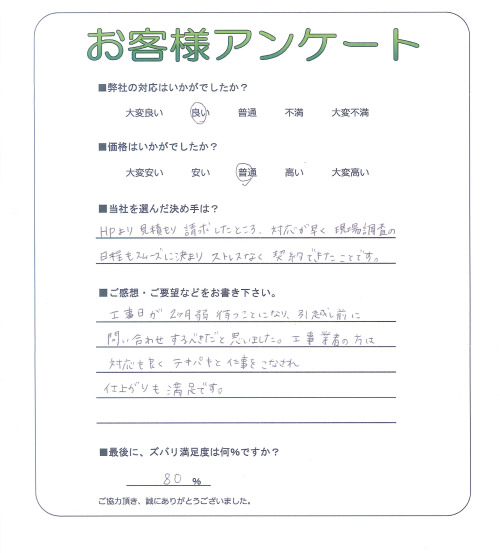 お客様アンケート
■弊社の対応はいかがでしたか？
大変良い 良い 普通 不満 大変不満
■価格はいかがでしたか？
大変安い 安い 普通 高い 大変高い
■当社を選んだ決め手は？
HPより見積もり請求したところ、対応が早く現場調査の
日程もスムーズに決まりストレスなく契約できたことです。
■ご感想・ご要望などをお書き下さい。
工事日が2ヶ月弱待つことになり、引越し前に
問い合わせするべきだと思いました。工事業者の方は
対応も良くテキパキと仕事をこなされ
仕上がりも満足です。
■最後に、ズバリ満足度は何％ですか？
80 ％
ご協力頂き、誠にありがとうございました。